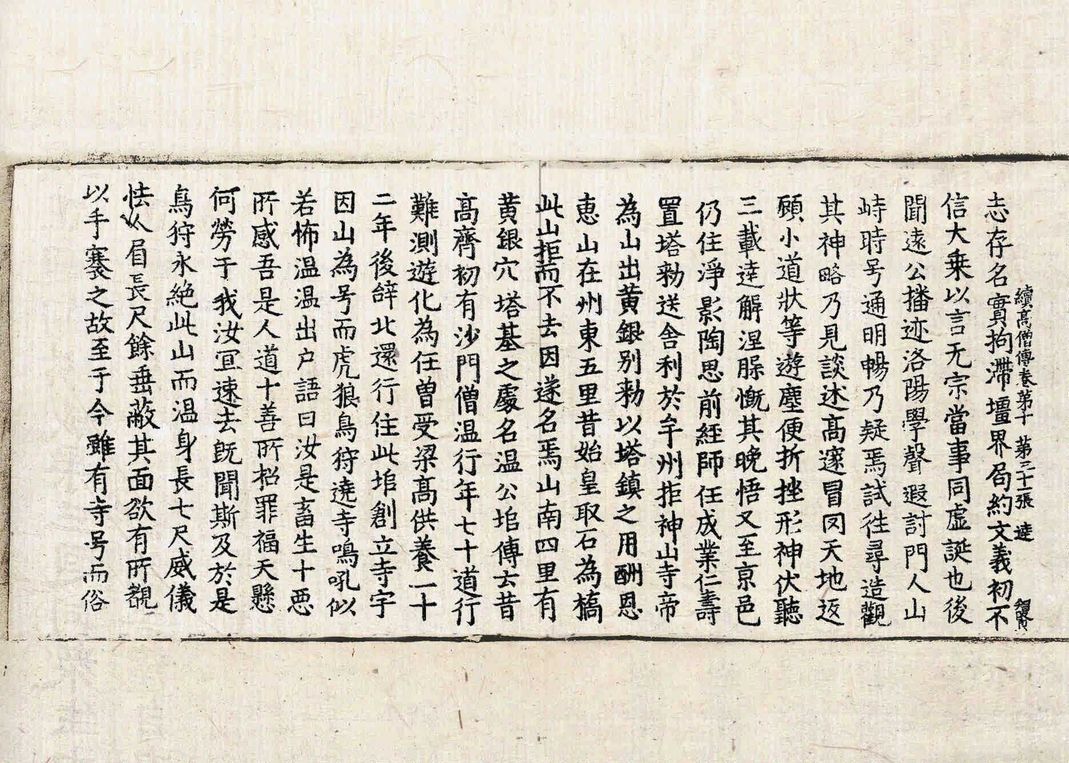 志存名實拘滯壇界局約文義初不
續高僧傳卷第十 第三十一張 達
信大乗以言无宗當事同虛誕也後
聞遠公播迹洛陽學聲遐討門人山
峙時号通明暢乃疑焉試往尋造觀
其神略乃見談述高邃冒罔天地返
顧小道狀等遊塵便折挫形神伏聽
三載達解涅槃慨其晚悟又至京邑
仍住淨影陶思前經師任成業仁壽
置塔勅送舍利於牟州拒神山寺帝
為山出黄銀别勅以塔鎮之用酬恩
惠山在州東五里昔始皇取石為橋
此山拒而不去因遂名焉山南四里有
黄銀穴塔基之處名温公埳傳云昔
高齊初有沙門僧温行年七十道行
難測遊化為任曽受梁高供養一十
二年後辝北還行住此埳創立寺宇
因山為号而虎狼鳥狩遶寺鳴吼似
若怖温温出户語曰汝是畜生十悪
所感吾是人道十善所招罪福天懸
何勞于我汝冝速去旣聞斯及於是
鳥狩永絶此山而温身長七尺威儀
怯人眉長尺餘垂蔽其面欲有所觀
以手褰之故至于今雖有寺号而俗